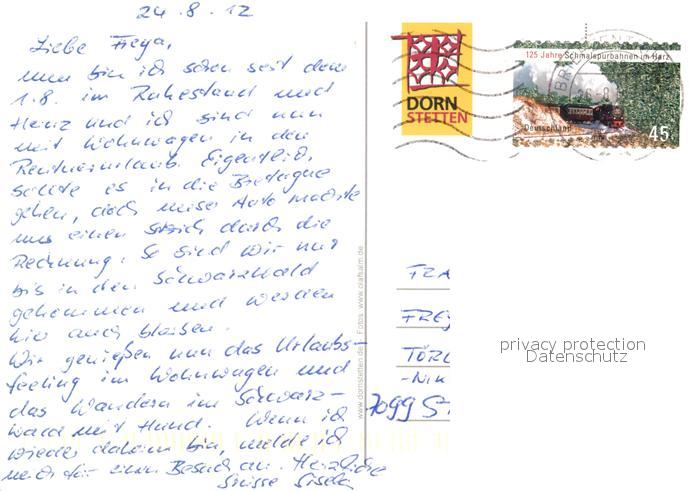 24.8.12
Liebe Freya,
nun bin ich schon seit dem
1.8. im Ruhestand und
Heinz und ich sind nun
mit Wohnwagen in den
Rentnerurlaub. Eigentlich
sollte es in die Bretagne
gehen, doch unser Auto machte
uns einen Strich durch die
Rechnung. So sind wir nur
bis in den Schwarzwald
gekommen und werden
hier auch bleiben.
Wir genießen nun das Urlaubs-
feeling im Wohnwagen und
das Wandern im Schwarz-
wald mit Hund. Wenn ich
wieder daheim bin, melde ich
mich für einen Besuch an. Herzliche
Grüsse Gisela
www.dornstetten.de Fotos: www.olafsalm.de
DORN
STETTEN
125 Jahre Schmalspurbahnen im Harz
Deutschland
45
FRA
FREY
-NIK
7099 ST
privacy protection
Datenschutz